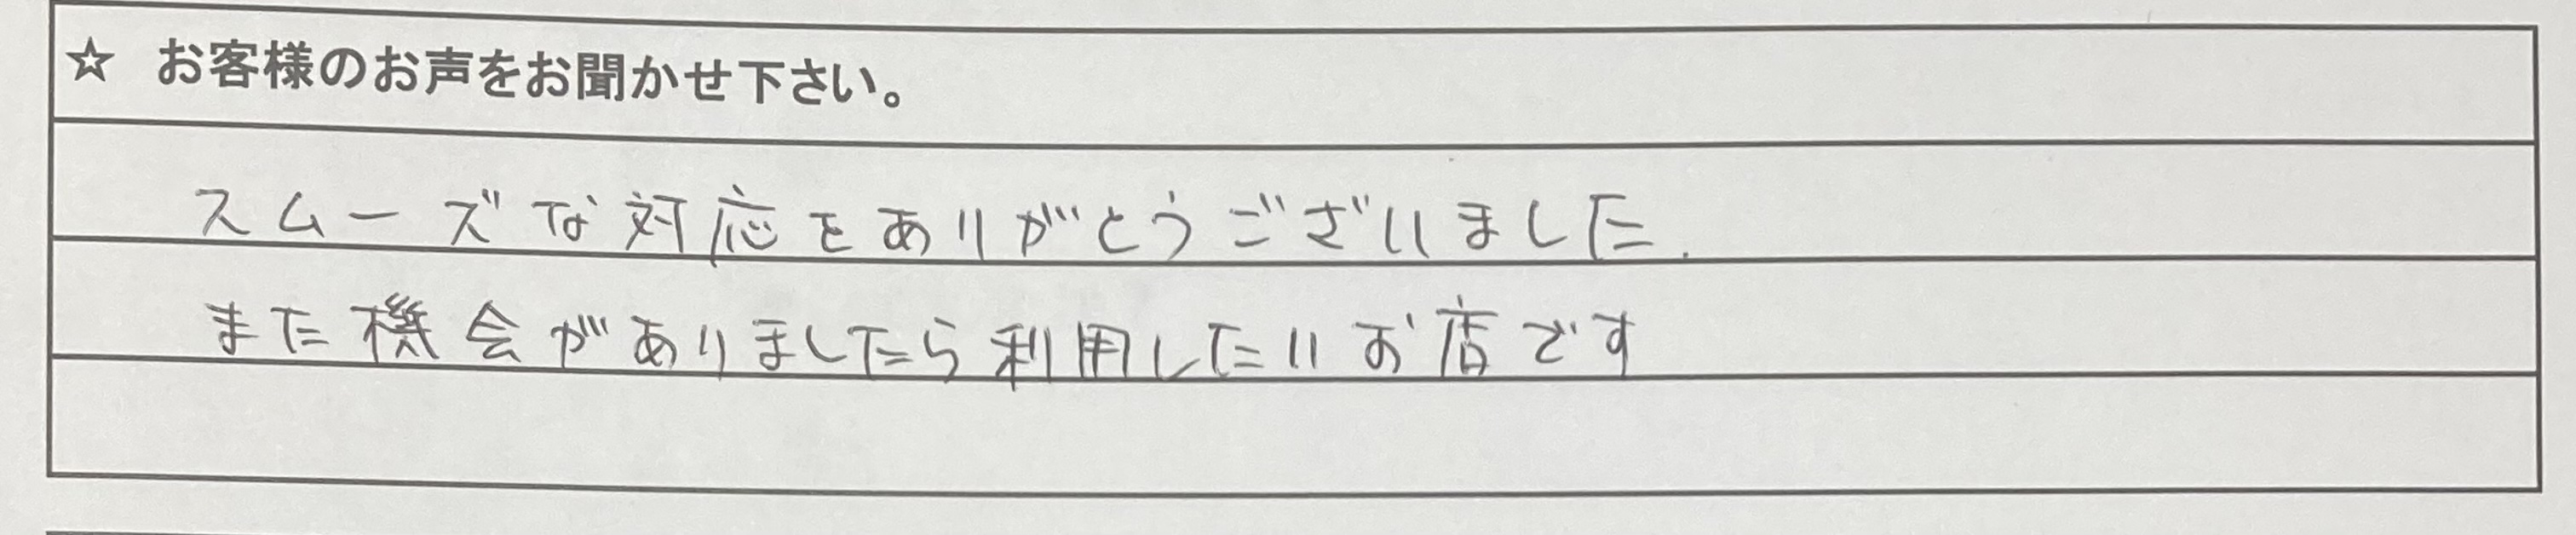 ☆ お客様のお声をお聞かせ下さい。
スムーズな対応をありがとうございました.
また機会がありましたら利用したいお店です